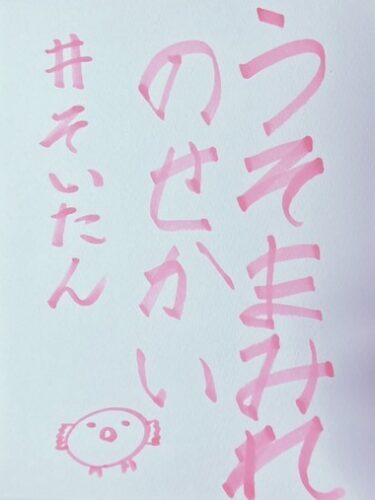 うそまみれ
のせかい
#そいたん